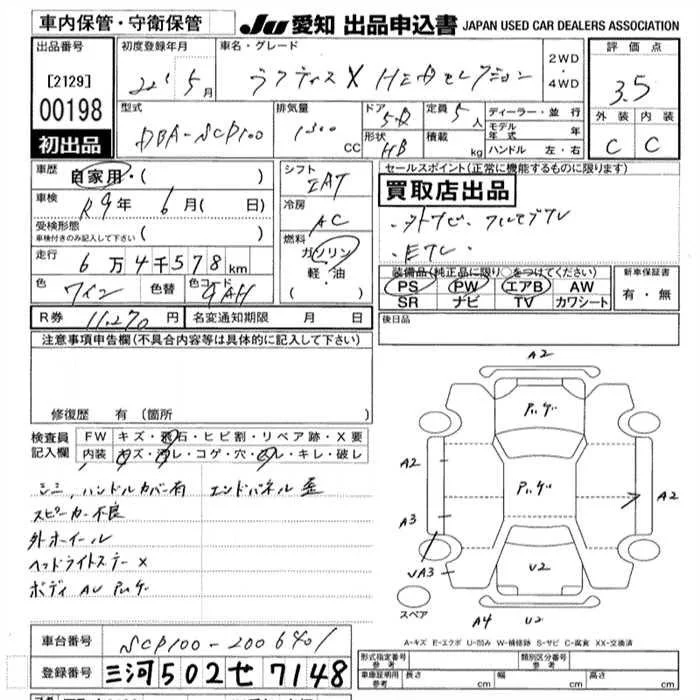 車内保管・守衛保管 JU 愛知 出品申込書 JAPAN USED CAR DEALERS ASSOCIATION
出品番号
[2129]
00198
初出品
初度登録年月
22年 5月
車名・グレード
ラクティス X HIDセレクション
2WD
・
4WD
評価点
3.5
外装 内装
C C
型式
DBA-SCP100
排気量
1300 CC
ドア
5D
形状
HB
定員
5人
積載
kg
ディーラー・並行
モデル年式 年
ハンドル 左・右
車歴
自家用・( )
車検
R9年 6月( 日)
受検形態
車検付きのみ記入して下さい ( )
走行
6万4千578km
色
ワイン
色替
色コード
シフト
IAT
冷房
AC
燃料
ガソリン
軽・油
( )
セールスポイント(正常に機能するものに限ります)
買取店出品
・外ナビ・フルセグTV
・ETC・
装備品(純正品に限り○をつけてください)
PS PW エアB AW
SR ナビ TV カワシート
新車保証書
有・無
R券 11,270円 名変通知期限 月 日
後日品
注意事項申告欄(不具合内容等は具体的に記入して下さい)
修復歴 有(箇所
検査員
記入欄
FW キズ・飛石・ヒビ割・リペア跡・X要
内装 キズ・汚レ・コゲ・穴・スレ・キレ・破レ
シミ, ハンドルカバー有 エンドパネル 歪
スピーカー不良
外ホイール
ヘッドライトステー X
ボディ AU
A2
A2
A3
VA3
A2
U2
A4 U2
スペア
A-キズ E-エクボ U-凹み W-補修跡 S-サビ C-腐食 XX-交換済
車台番号 SCP100-2006401
登録番号 三河502せ7148
型式指定番号
参考
類別区分番号
参考
車庫証明用
参考
長さ cm 幅 cm 高さ cm